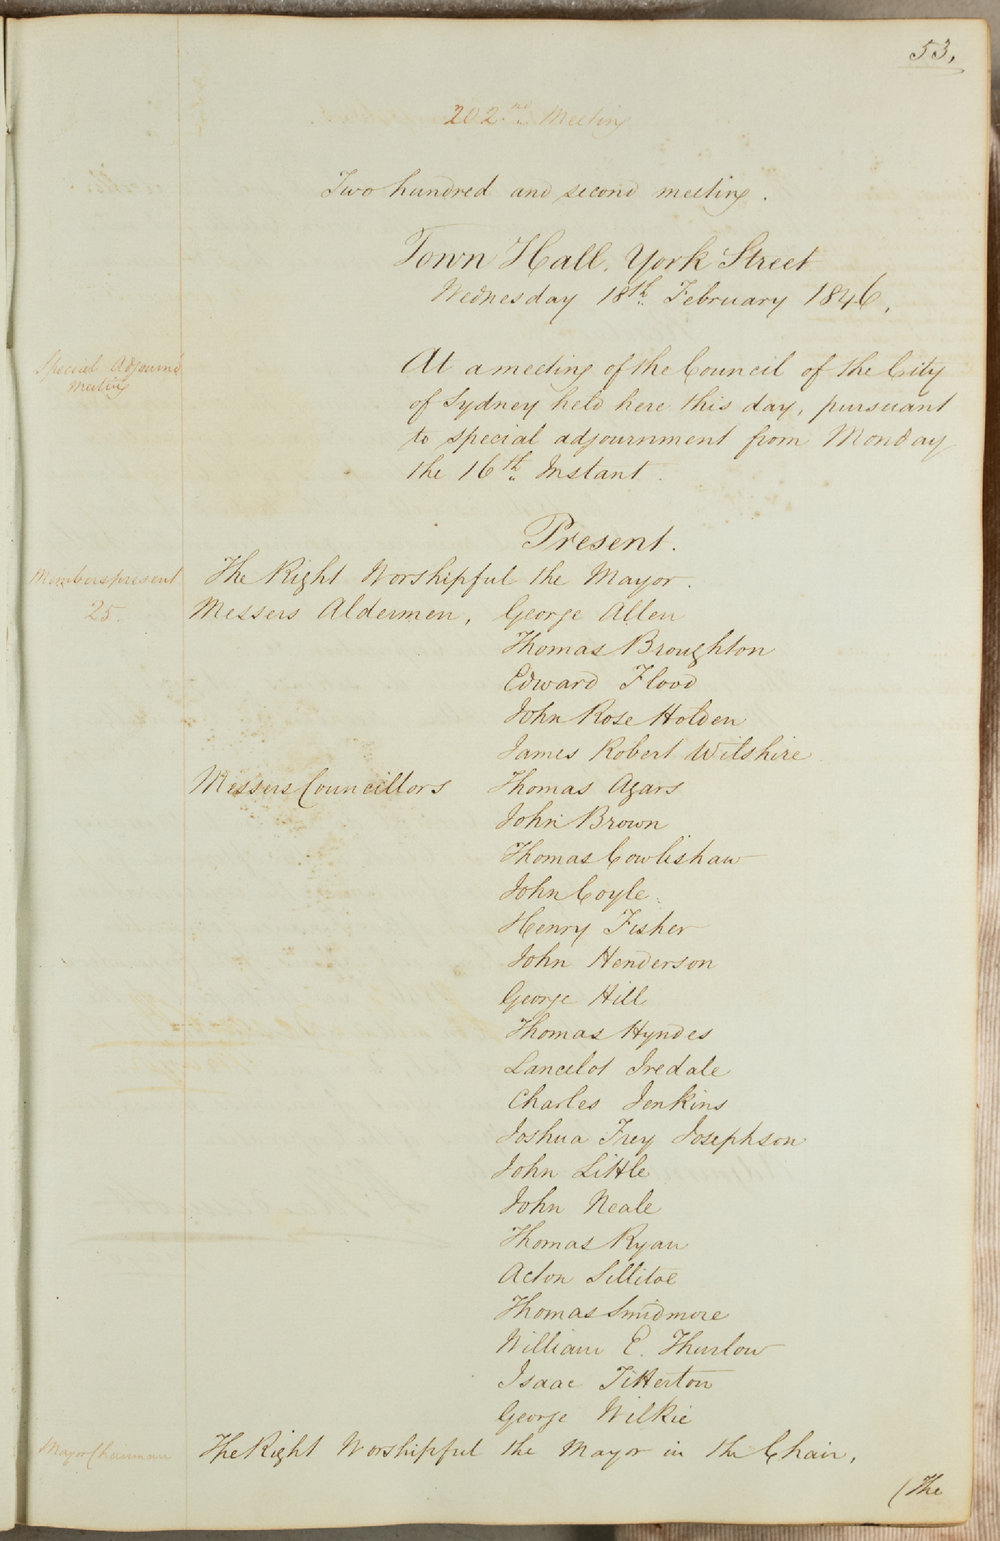 53,
202nd Meeting
Two hundred and second meeting.
Town Hall, York Street
Wednesday 18th February 1846,
Special Adjourn'd
Meeting
At a meeting of the Council of the City
of Sydney held here this day, pursuant
to special adjournment from Monday
the 16th Instant.
Present.
Members present
25.
The Right Worshipful the Mayor.
Messers Aldermen, George Allen
Thomas Broughton
Edward Flood
John Rose Holden
James Robert Wilshire
Messers Councillors Thomas Agars
John Brown
Thomas Cowlishaw
John Coyle.
Henry Fisher
John Henderson
George Hill
Thomas Hyndes
Lancelot Iredale
Charles Jenkins
Joshua Frey Josephson
John Little
John Neale
Thomas Ryan
Acton Sillitoe
Thomas Smidmore
William E. Thurlow
Isaac Titterton
George Wilkie
Mayor Chairman
The Right Worshipful the Mayor in the Chair,
(The